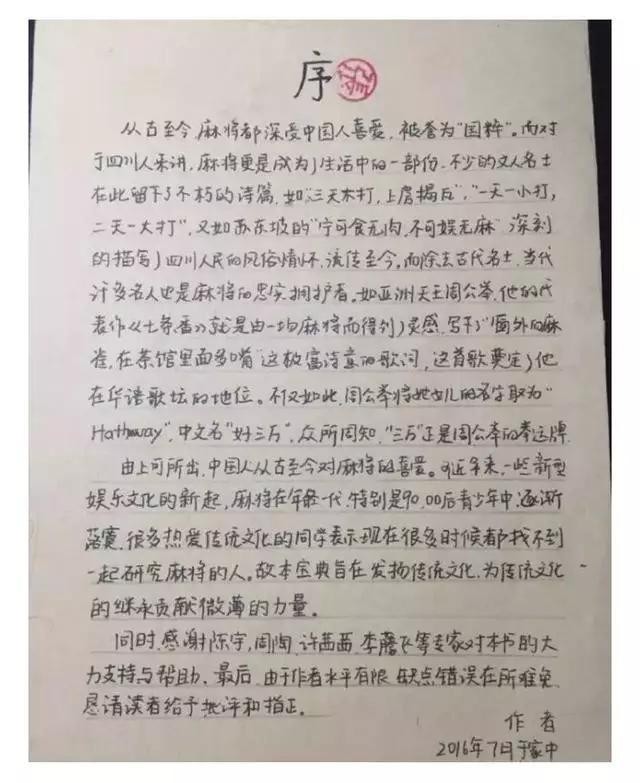 序
从古至今,麻将都深受中国人喜爱,被誉为"国粹"。而对
于四川人来讲,麻将更是成为了生活中的一部份,不少的文人名士
在此留下了不朽的诗篇,如"三天不打,上房揭瓦","一天一小打,
二天一大打",又如苏东坡的"宁可食无肉,不可娱无麻"深刻
的描写了四川人民的风俗情怀,流传至今。而除去古代名士,当代
许多名人也是麻将的忠实拥护者。如亚洲天王周公举,他的代
表作《七筒香》就是由一场麻将而得到了灵感,写下了"窗外的麻
雀,在茶馆里面多嘴"这极富诗意的歌词,这首歌奠定了他
在华语歌坛的地位。不仅如此,周公举将她女儿的名字取为"
Hathaway",中文名"好三万",众所周知,"三万"正是周公举的幸运牌.
由上可所出,中国人从古至今对麻将的喜爱。可近年来,一些新型
娱乐文化的新起,麻将在年轻一代,特别是90,00后青少年中,逐渐
落寞,很多热爱传统文化的同学表示现在很多时候都找不到
一起研究麻将的人。故本宝典旨在发扬传统文化,为传统文化
的继承贡献微薄的力量。
同时,感谢陈宇,周陶,许茜茜,李蘑飞等专家对本书的大
力支持与帮助。最后,由于作者水平有限,缺点错误在所难免,
恳请读者给予批评和指正。
作者
2016年7日于家中